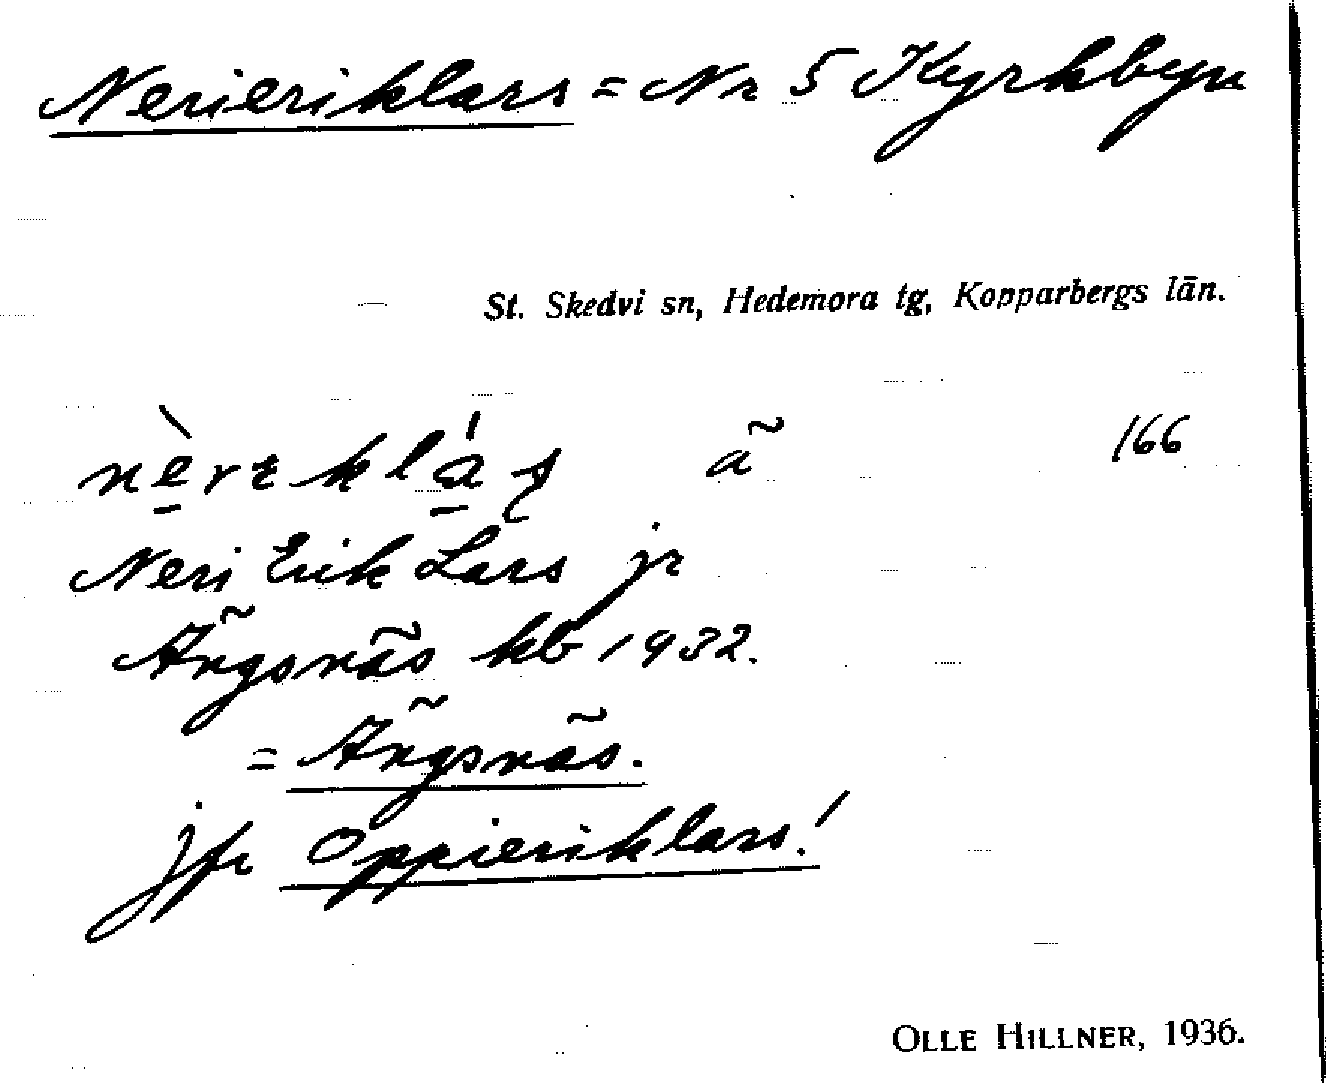 Nerieriklars = Nr 5 Kyrkbyn
St. Skedvi sn, Hedemora tg, Kopparbergs län.
ä 166
Neri Erik Lars jr
Ängsnäs kb 1932.
= Ängsnäs.
jfr Oppieriklars!
OLLE HILLNER, 1936.